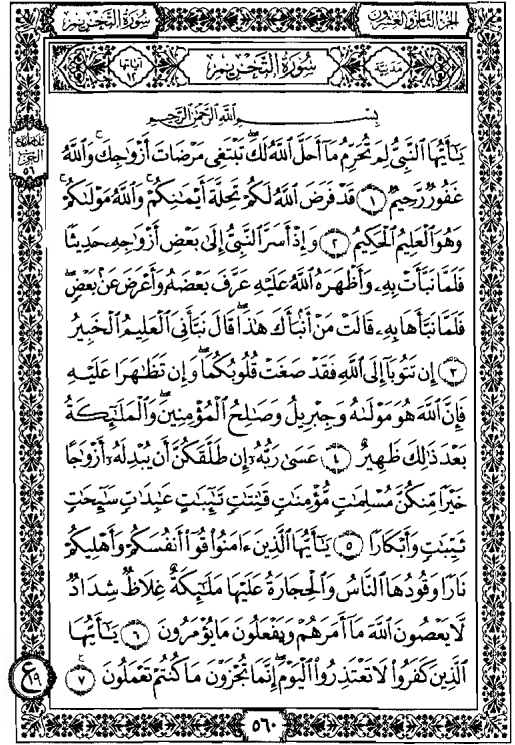 الجزء الثامن والعشرون
سورة التحريم
مدنية
سُورَةُ التَّحْرِيم
آياتها ١٢
بِسْمِ اللَّهِ الرَّحْمَٰنِ الرَّحِيمِ
يَٰٓأَيُّهَا ٱلنَّبِىُّ لِمَ تُحَرِّمُ مَآ أَحَلَّ ٱللَّهُ لَكَ ۖ تَبْتَغِى مَرْضَاتَ أَزْوَٰجِكَ ۚ وَٱللَّهُ
غَفُورٌ رَّحِيمٌ ١ قَدْ فَرَضَ ٱللَّهُ لَكُمْ تَحِلَّةَ أَيْمَٰنِكُمْ ۚ وَٱللَّهُ مَوْلَىٰكُمْ ۖ
وَهُوَ ٱلْعَلِيمُ ٱلْحَكِيمُ ٢ وَإِذْ أَسَرَّ ٱلنَّبِىُّ إِلَىٰ بَعْضِ أَزْوَٰجِهِۦ حَدِيثًا
فَلَمَّا نَبَّأَتْ بِهِۦ وَأَظْهَرَهُ ٱللَّهُ عَلَيْهِ عَرَّفَ بَعْضَهُۥ وَأَعْرَضَ عَنۢ بَعْضٍ ۖ
فَلَمَّا نَبَّأَهَا بِهِۦ قَالَتْ مَنْ أَنۢبَأَكَ هَٰذَا ۖ قَالَ نَبَّأَنِىَ ٱلْعَلِيمُ ٱلْخَبِيرُ
٣ إِن تَتُوبَآ إِلَى ٱللَّهِ فَقَدْ صَغَتْ قُلُوبُكُمَا ۖ وَإِن تَظَٰهَرَا عَلَيْهِ
فَإِنَّ ٱللَّهَ هُوَ مَوْلَىٰهُ وَجِبْرِيلُ وَصَٰلِحُ ٱلْمُؤْمِنِينَ ۖ وَٱلْمَلَٰٓئِكَةُ
بَعْدَ ذَٰلِكَ ظَهِيرٌ ٤ عَسَىٰ رَبُّهُۥٓ إِن طَلَّقَكُنَّ أَن يُبْدِلَهُۥٓ أَزْوَٰجًا
خَيْرًا مِّنكُنَّ مُسْلِمَٰتٍ مُّؤْمِنَٰتٍ قَٰنِتَٰتٍ تَٰٓئِبَٰتٍ عَٰبِدَٰتٍ سَٰٓئِحَٰتٍ
ثَيِّبَٰتٍ وَأَبْكَارًا ٥ يَٰٓأَيُّهَا ٱلَّذِينَ ءَامَنُوا۟ قُوٓا۟ أَنفُسَكُمْ وَأَهْلِيكُمْ
نَارًا وَقُودُهَا ٱلنَّاسُ وَٱلْحِجَارَةُ عَلَيْهَا مَلَٰٓئِكَةٌ غِلَاظٌ شِدَادٌ
لَّا يَعْصُونَ ٱللَّهَ مَآ أَمَرَهُمْ وَيَفْعَلُونَ مَا يُؤْمَرُونَ ٦ يَٰٓأَيُّهَا
ٱلَّذِينَ كَفَرُوا۟ لَا تَعْتَذِرُوا۟ ٱلْيَوْمَ ۖ إِنَّمَا تُجْزَوْنَ مَا كُنتُمْ تَعْمَلُونَ ٧
ع ١٩
٥٦٠